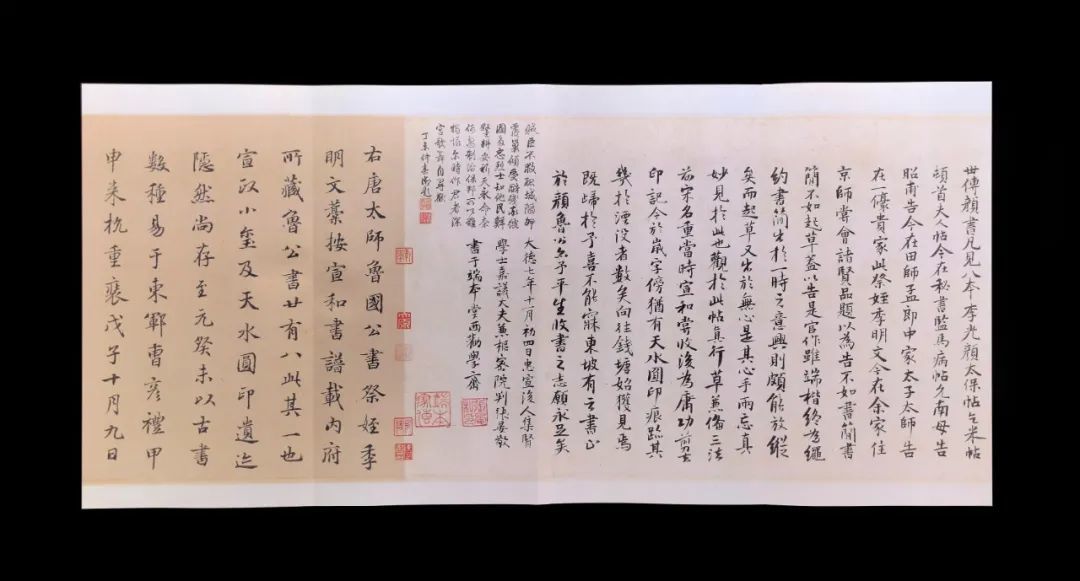 世傳顔書凡見八本李光顔太保帖乞米帖
頓首夫人帖今在秘書監馬病帖允南母告
昭甫告今在田師孟郎中家太子太師告
在一豪貴家此祭姪季明文今在余家往
京師嘗會諸賢品題以為告不如書簡書
簡不如起草蓋以告是官作雖端楷終為繩
約書簡出於一時之意興則頗能放縱
矣而起草又出於無心是其心手兩忘真
妙見於此也觀於此帖真行草兼備三法
前宋名重當時宣和嘗收後為庸功剪去
印記今於嵗字傍猶有天水圓印痕跡其
幾於湮没者數矣向在錢塘始獲見焉
既歸於予喜不能寐東坡有云書止
於顔魯公無予平生收書之志願永足矣
大德七年十月初四日忠宣後人集賢
學士嘉議大夫兼樞密院判張晏敬
書于端本堂西勸學齋
右唐太師魯國公書祭姪季
明文藁按宣和書譜載内府
所藏魯公書廿有八此其一也
宣政小璽及天水圓印遺迹
隱然尚存至元癸未以古書
數種易于東鄆曹彦禮甲
申来杭重裝戊子十月九日